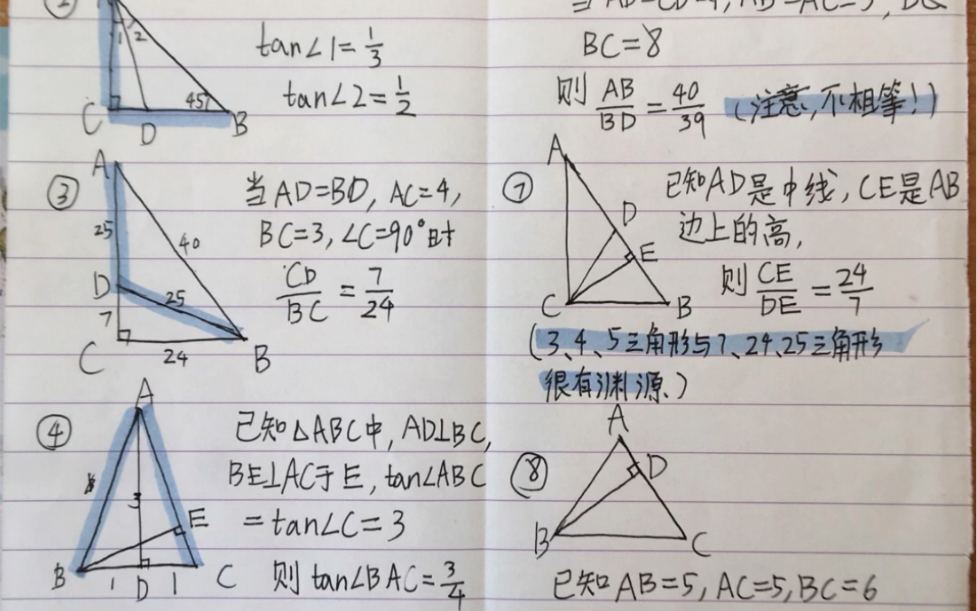 ②
1 2
45°
C D B
tan∠1=1/3
tan∠2=1/2
③
A
25
40
D
25
7
C
24
B
当AD=BD, AC=4,
BC=3,∠C=90°时
CD/BC = 7/24
④
A
3
E
B 1 D 1 C
已知△ABC中, AD⊥BC,
BE⊥AC于E, tan∠ABC
=tan∠C=3
则 tan∠BAC=3/4
BC=8
则 AB/BD = 40/39 (注意,不相等!)
⑦
A
D
E
C B
已知AD是中线, CE是AB
边上的高,
则 CE/DE = 24/7
(3、4、5三角形与7、24、25三角形
很有渊源.)
⑧
A
D
B
C
已知AB=5, AC=5, BC=6